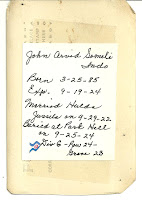 John Arvid Someli
Born 3-25-85
Exp. 9-19-24
Married Hulda
Jussila on 9-29-22
Buried at Park Hill
on 9-25-24
Div 6 - Row 24 -
Grave 23